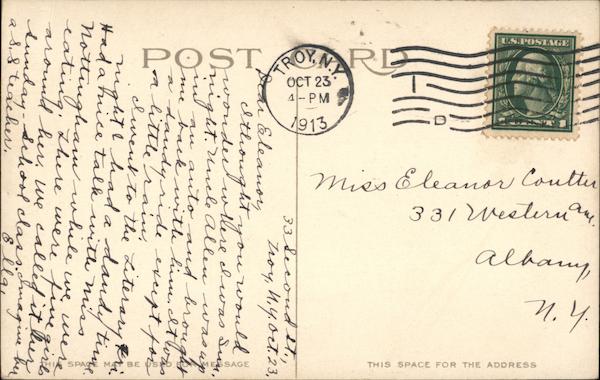 POST CARD
TROY, N.Y.
OCT 23
4-PM
1913
1
D
U.S. POSTAGE
1 CENT 1
33 Second St.,
Troy, N.Y. Oct. 23,
Dear Eleanor,
I thought you would
wonder where I was Sun.
night. Uncle Allen was up
in an auto and brought
me back with him. It was
a dandy ride except for
a little rain.
I went to the Literary Fri.
night & had a dandy time
Had a nice talk with Miss
Nottingham while we were
eating. There were five girls
around her. We called it her
Sunday-school class. Imagine her
a S.S. teacher.
Ella.
Miss Eleanor Coulter
331 Western Ave.
Albany,
N. Y.
THIS SPACE MAY BE USED FOR MESSAGE
THIS SPACE FOR THE ADDRESS